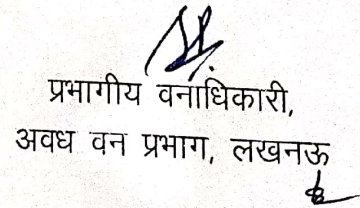 प्रभागीय वनाधिकारी,
अवध वन प्रभाग, लखनऊ